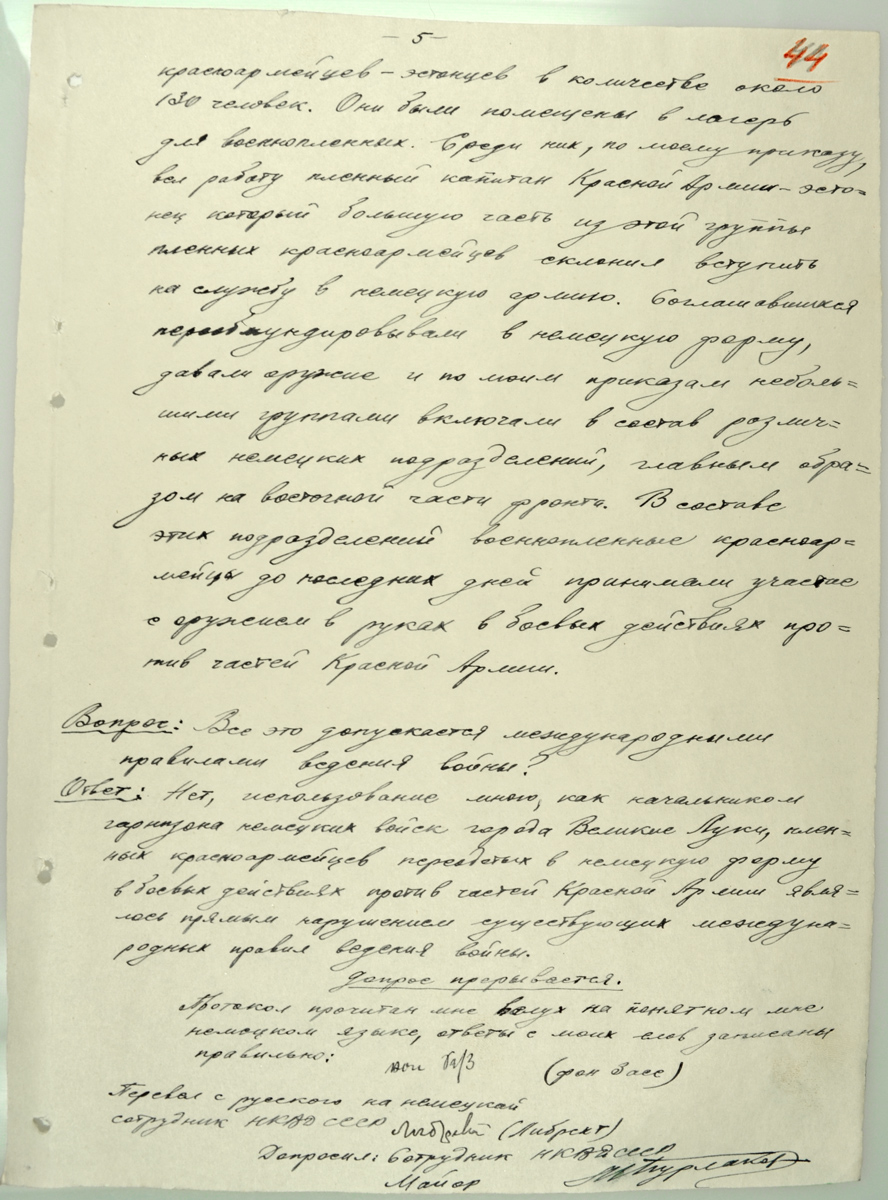 — 5 —
44
красноармейцев – эстонцев в количестве около
130 человек. Они были помещены в лагерь
для военнопленных. Среди них, по моему приказу,
вел работу пленный капитан Красной Армии – эсто=
нец который большую часть из этой группы
пленных красноармейцев склонил вступить
на службу в немецкую армию. Соглашавшихся
переобмундировывали в немецкую форму,
давали оружие и по моим приказам неболь=
шими группами включали в состав различ=
ных немецких подразделений, главным обра=
зом на восточной части фронта. В составе
этих подразделений военнопленные красноар=
мейцы до последних дней принимали участие
с оружием в руках в боевых действиях про=
тив частей Красной Армии.
Вопрос: Все это допускается международными
правилами ведения войны?
Ответ: Нет, использование мною, как начальником
гарнизона немецких войск города Великие Луки, плен=
ных красноармейцев переодетых в немецкую форму
в боевых действиях против частей Красной Армии явля=
лось прямым нарушением существующих междуна=
родных правил ведения войны.
Допрос прерывается.
Протокол прочитан мне вслух на понятном мне
немецком языке, ответы с моих слов записаны
правильно:
(фон Засс)
Перевел с русского на немецкий
сотрудник НКВД СССР
(Либрехт)
Допросил: Сотрудник НКВД СССР
Майор